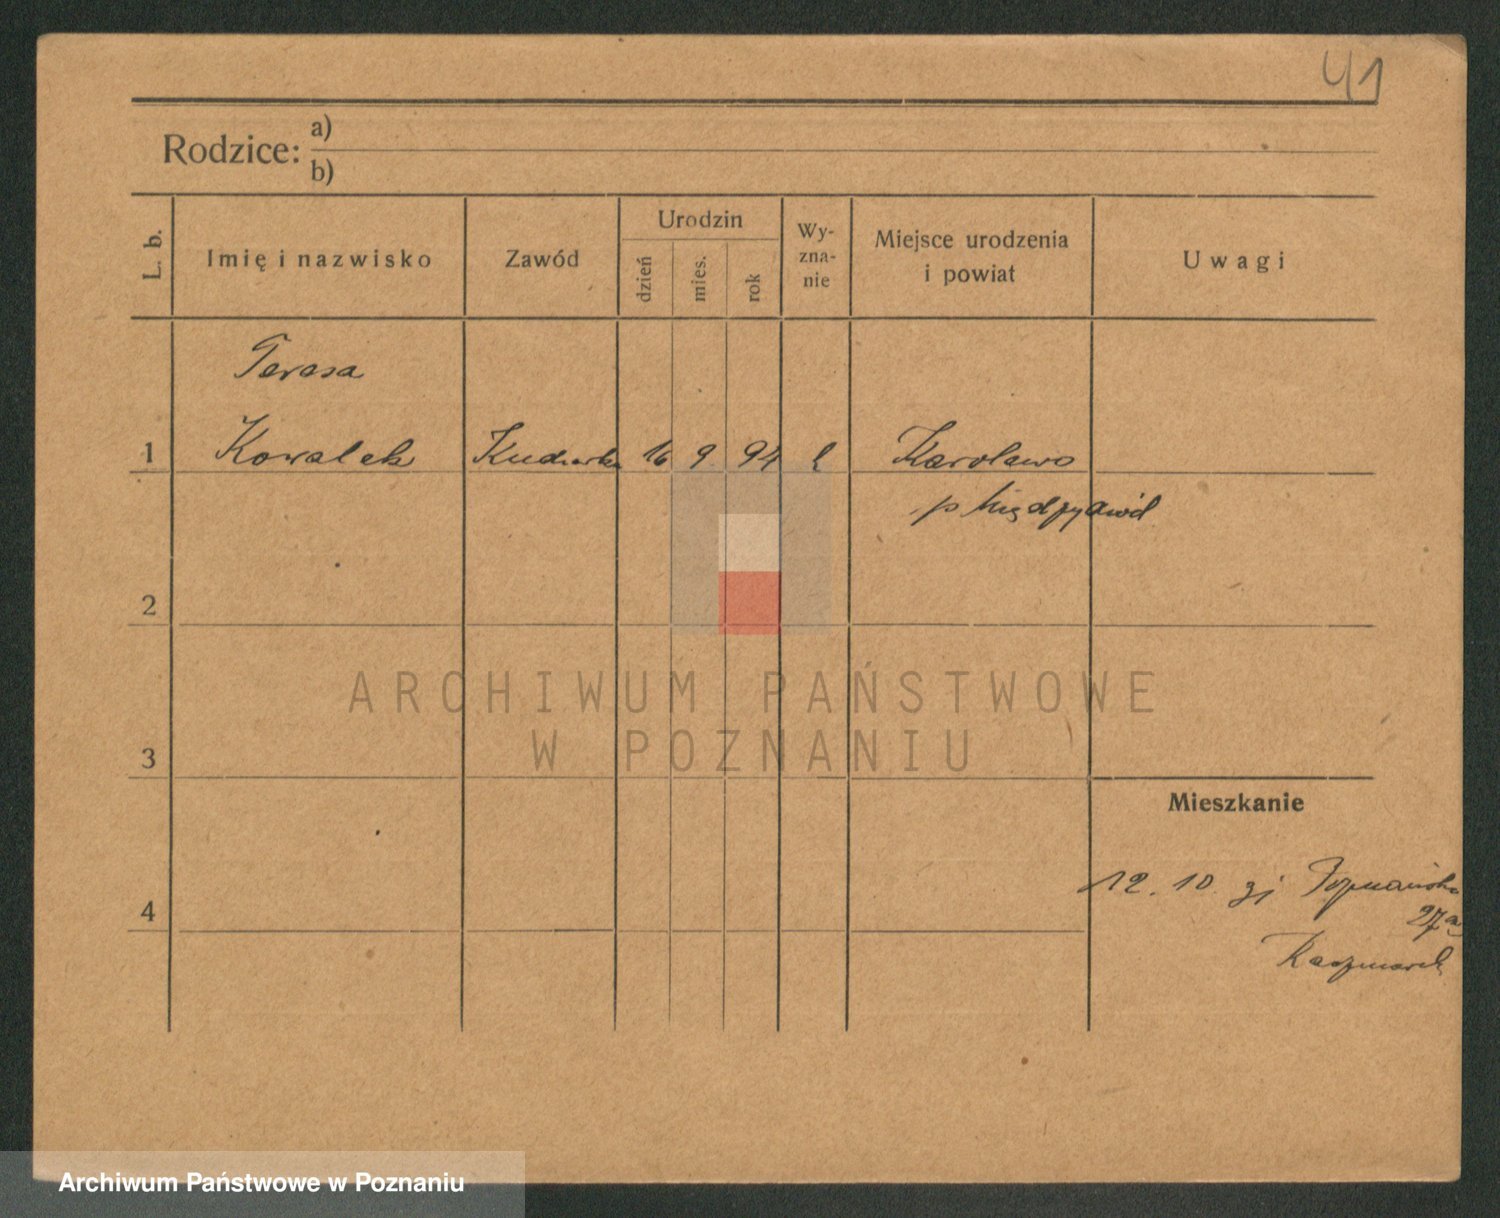 41
Rodzice:
a)
b)
L. b.
Imię i nazwisko
Zawód
Urodzin
dzień
mies.
rok
Wy-
zna-
nie
Miejsce urodzenia
i powiat
Uwagi
Teresa
1 Kowalek Kucharka 16 9 94 Karolewo
p
2
ARCHIWUM PAŃSTWOWE
W POZNANIU
3
Mieszkanie
12. 10. Poznańska
27a
4
Kaczmarek
Archiwum Państwowe w Poznaniu